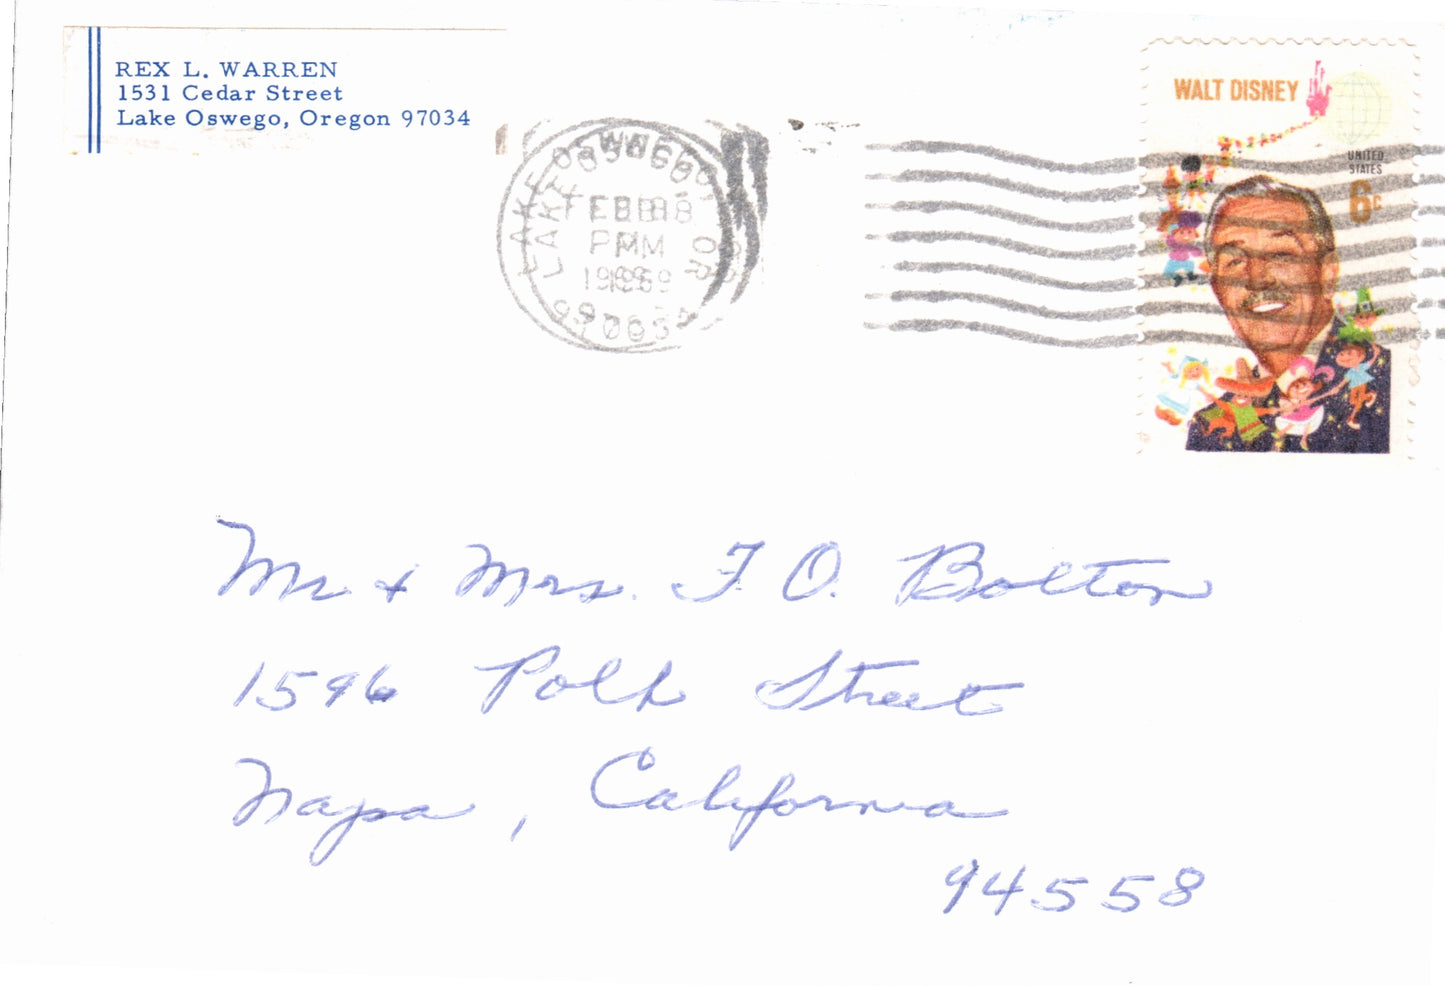 REX L. WARREN
1531 Cedar Street
Lake Oswego, Oregon 97034
LAKE OSWEGO, OR
FEB 18
PM
1969
WALT DISNEY
UNITED
STATES
6c
Mr. & Mrs. F. O. Bolton
1596 Polk Street
Napa, California
94558